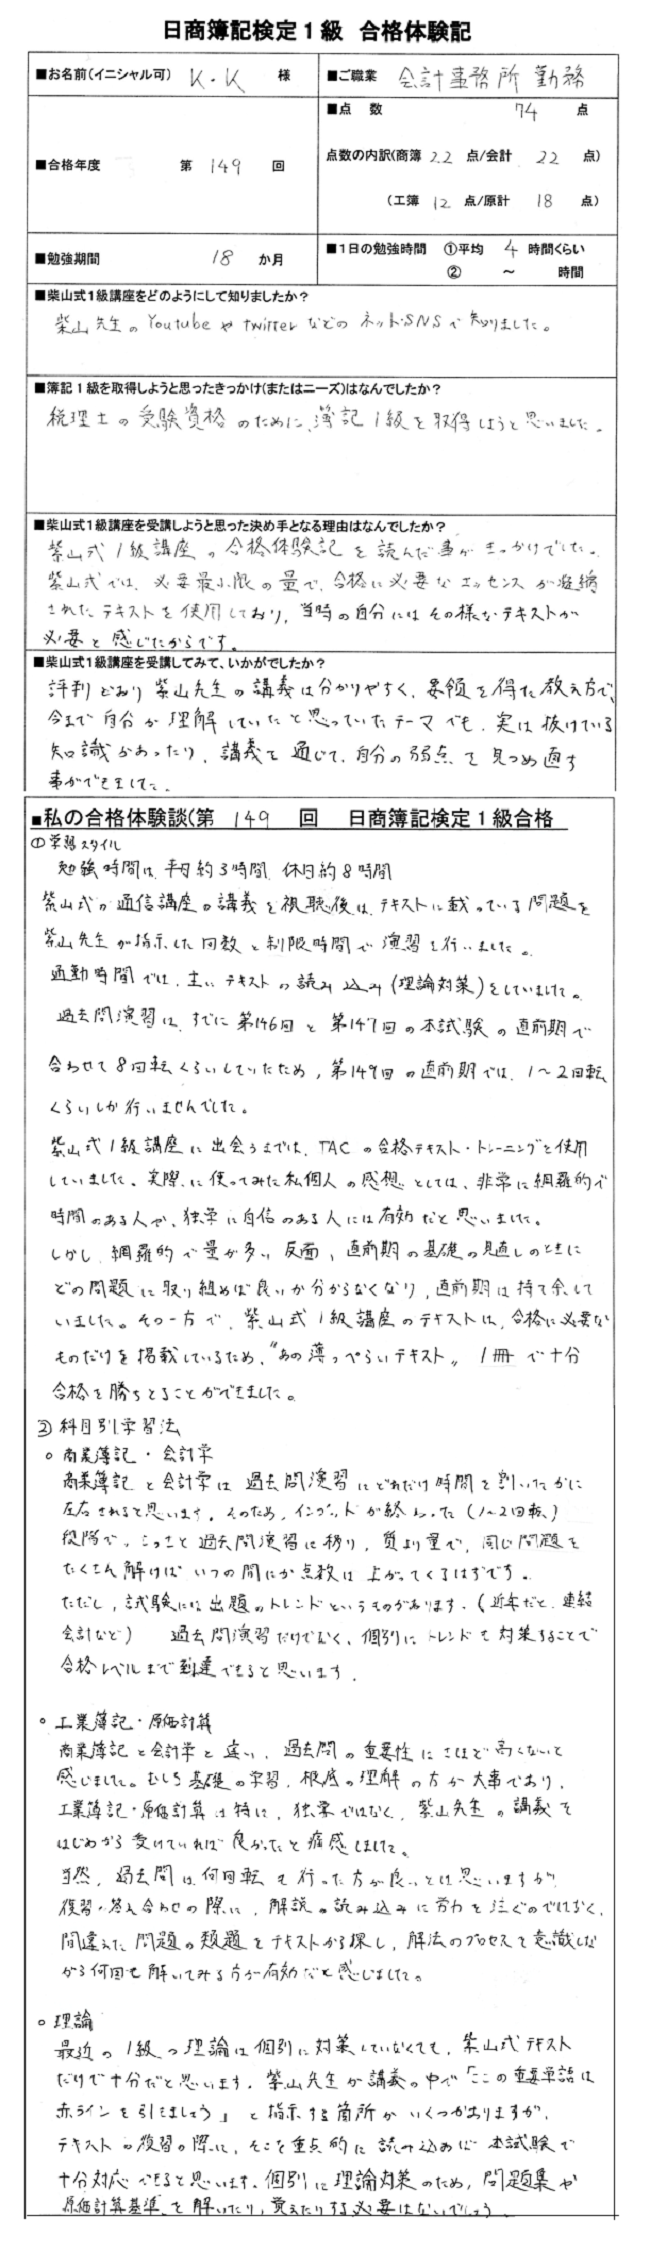 日商簿記検定1級 合格体験記
■お名前(イニシャル可) K.K 様
■ご職業 会計事務所 勤務
■合格年度 第 149 回
■点 数 74 点
点数の内訳(商簿 22 点/会計 22 点)
(工簿 12 点/原計 18 点)
■勉強期間 18 か月
■1日の勉強時間 ①平均 4 時間くらい
② ~ 時間
■柴山式1級講座をどのようにして知りましたか?
柴山先生のYoutubeやtwitterなどのネット・SNSで知りました。
■簿記1級を取得しようと思ったきっかけ(またはニーズ)はなんでしたか?
税理士の受験資格のために、簿記1級を取得しようと思いました。
■柴山式1級講座を受講しようと思った決め手となる理由はなんでしたか?
柴山式1級講座の合格体験記を読んだ事がきっかけでした。
柴山式では、必要最小限の量で、合格に必要なエッセンスが凝縮
されたテキストを使用しており、当時の自分にはその様なテキストが
必要と感じたからです。
■柴山式1級講座を受講してみて、いかがでしたか?
評判どおり柴山先生の講義は分かりやすく、要領を得た教え方で、
今まで自分が理解していたと思っていたテーマでも、実は抜けている
知識があったり、講義を通じて、自分の弱点を見つめ直す
事ができました。
■私の合格体験談(第 149 回 日商簿記検定1級合格
①学習スタイル
勉強時間は、平日約3時間、休日約8時間
柴山式の通信講座の講義を視聴後は、テキストに載っている問題を
柴山先生が指示した回数と制限時間で演習を行いました。
通勤時間では、主にテキストの読み込み(理論対策)をしていました。
過去問演習は、すでに第146回と第147回の本試験の直前期で
合わせて8回転くらいしていたため、第149回の直前期では、1~2回転
くらいしか行いませんでした。
柴山式1級講座に出会うまでは、TACの合格テキスト・トレーニングを使用
していました。実際に使ってみた私個人の感想としては、非常に網羅的で
時間のある人や、独学に自信のある人には有効だと思いました。
しかし、網羅的で量が多い反面、直前期の基礎の見直しのときに
どの問題に取り組めば良いか分からなくなり、直前期は持て余して
いました。その一方で、柴山式1級講座のテキストは、合格に必要な
ものだけを掲載しているため、"あの薄っぺらいテキスト" 1冊で十分
合格を勝ちとることができました。
②科目別学習法
○ 商業簿記・会計学
商業簿記と会計学は過去問演習にどれだけ時間を割いたかに
左右されると思います。そのため、インプットが終わった(1~2回転)
段階で、さっさと過去問演習に移り、質より量で、同じ問題を
たくさん解けばいつの間にか点数は上がってくるはずです。
ただし、試験には出題のトレンドというものがあります。(近年だと、連結
会計など) 過去問演習だけでなく、個別にトレンドを対策することで
合格レベルまで到達できると思います。
○ 工業簿記・原価計算
商業簿記と会計学と違い、過去問の重要性はさほど高くないと
感じました。むしろ基礎の学習、根底の理解の方が大事であり、
工業簿記・原価計算は特に、独学ではなく、柴山先生の講義を
はじめから受けていれば良かったと痛感しました。
当然、過去問は何回転も行った方が良いとは思いますが
復習・答え合わせの際に、解説の読み込みに労力を注ぐのではなく、
間違えた問題の類題をテキストから探し、解法のプロセスを意識しな
がら何回も解いてみる方が有効だと感じました。
○ 理論
最近の1級の理論は個別に対策していなくても、柴山式テキスト
だけで十分だと思います。柴山先生が講義の中で「ここの重要単語は
赤ラインを引きましょう」と指示する箇所がいくつかありますが、
テキストの復習の際に、そこを重点的に読み込めば本試験で
十分対応できると思います。個別に理論対策のため、問題集や
原価計算基準を解いたり、覚えたりする必要はないでしょう